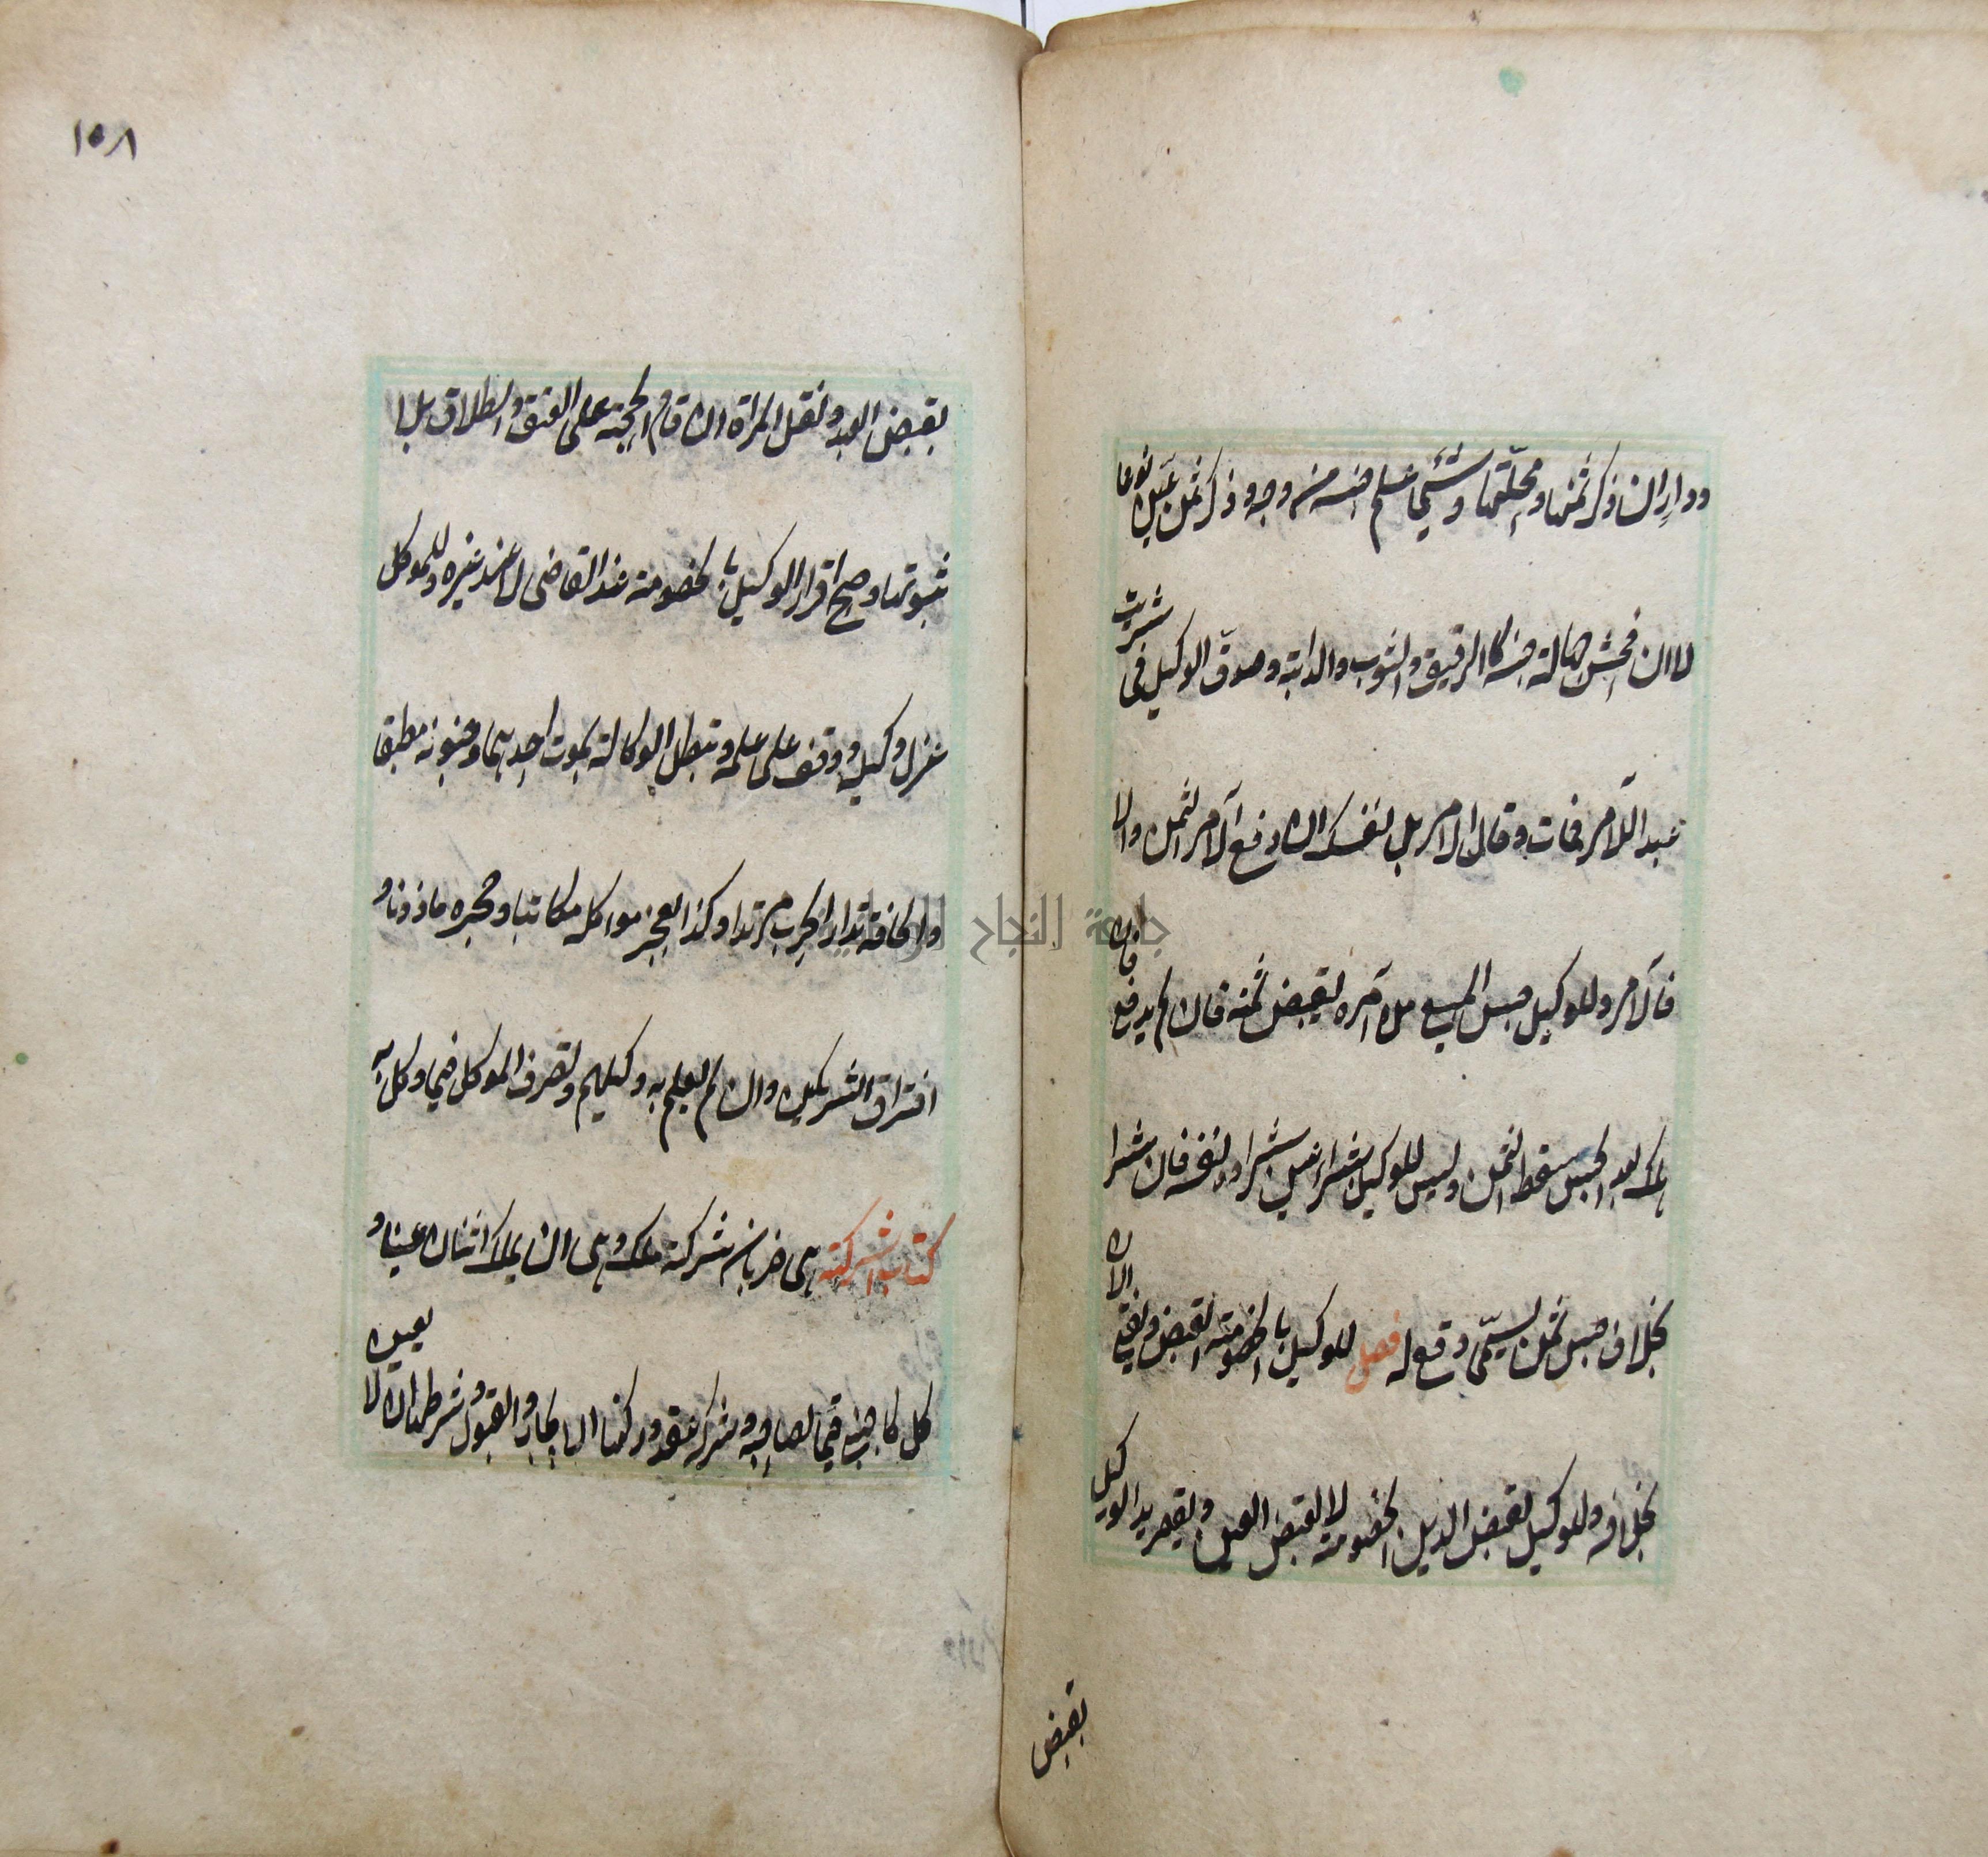 ودار ان ذكر ثمنها ومحلتها وشئ علم جنسه من وجه وذكر ثمن عين نوعا
لا ان فحش جهالة جنسه كالرقيق والثوب والدابة وصدق الوكيل في شريت
عبدا للآمر فمات وقال الامر بل لنفسك ان دفع الآمر الثمن والا
فالآمر وللوكيل حبس المبيع من آمره لقبض ثمنه فان لم يدفع فان
هلك بعد الحبس سقط الثمن وليس للوكيل بشراء عين شراؤه لنفسه فان شرا
بخلاف جنس ثمن سمي وقع له فصل للوكيل بالخصومة القبض ويفتي الان
بخلافه وللوكيل بقبض الدين الخصومة لا بقبض العين ويقصر يد الوكيل
بقبض
١٥٨
بقبض العبد ونقل المراة ان اقام الحجة على العتق والطلاق بلا
ثبوتهما وصح اقرار الوكيل بالخصومة عند القاضي لا عند غيره وللموكل
عزل وكيله ووقف على علمه وتبطل الوكالة بموت احدهما وجنونه مطبقا
ولحاقه بدار الحرب مرتدا وكذا بعجز موكله مكاتبا وحجره ماذونا و
افتراق الشريكين وان لم يعلم به وكيلهم وتصرف الموكل فيما وكل به
كتاب الشركة هي ضربان شركة ملك وهي ان يملك اثنان عينا و
كل كاجنبي في مال صاحبه وشركة عقد وركنها الايجاب والقبول وشرطها ان لا يعين
جامعة النجاح